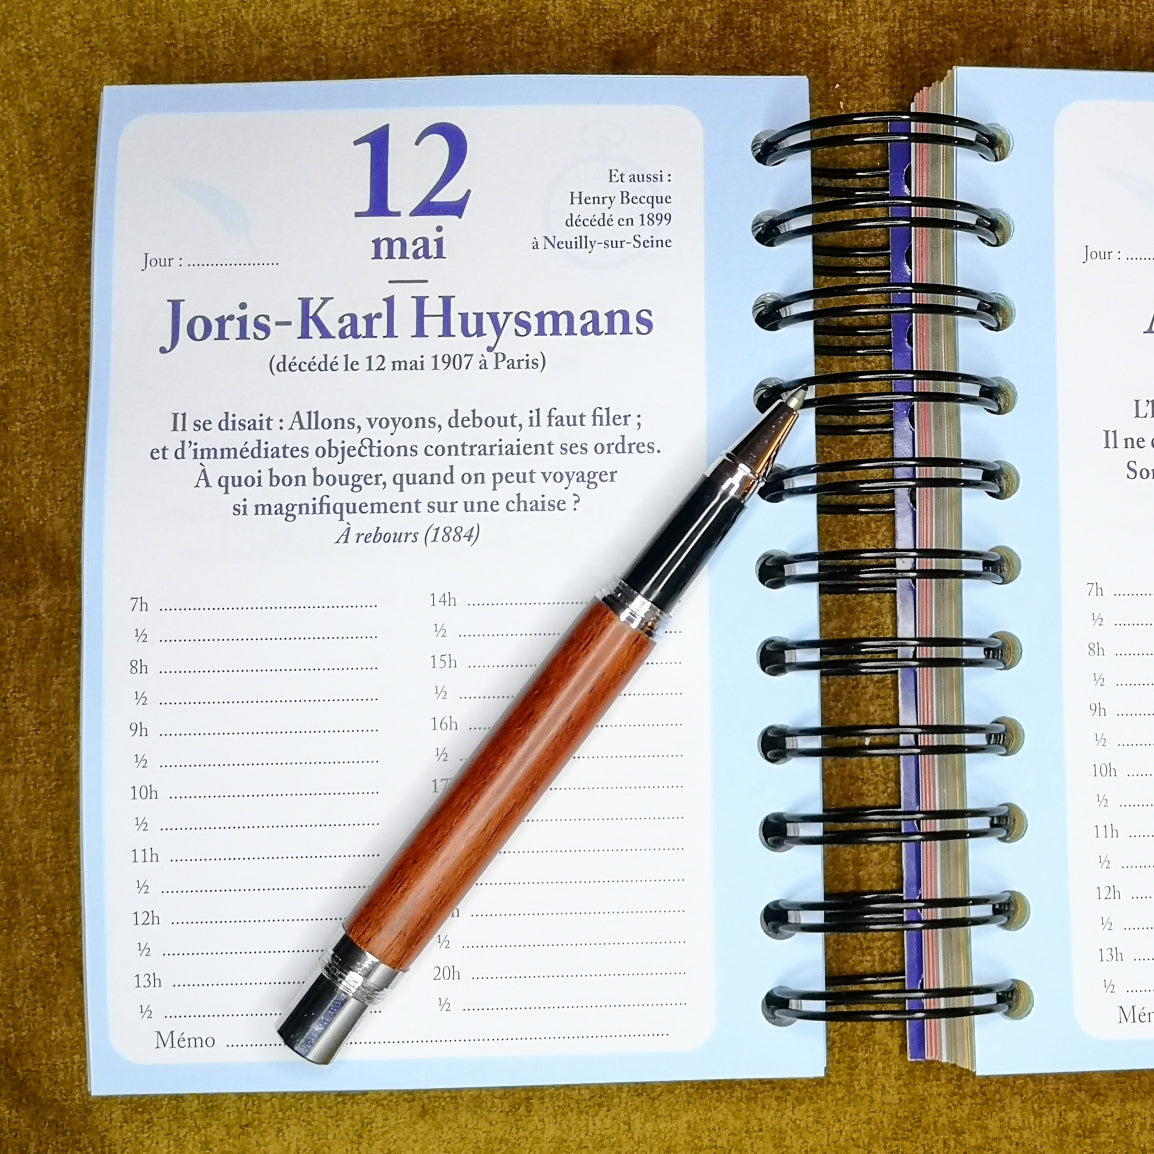 12
mai
Et aussi :
Henry Becque
décédé en 1899
à Neuilly-sur-Seine
Jour : ....................
Joris-Karl Huysmans
(décédé le 12 mai 1907 à Paris)
Il se disait : Allons, voyons, debout, il faut filer ;
et d'immédiates objections contrariaient ses ordres.
À quoi bon bouger, quand on peut voyager
si magnifiquement sur une chaise ?
À rebours (1884)
7h
½
8h
½
9h
½
10h
½
11h
½
12h
½
13h
½
14h
½
15h
½
16h
½
½
20h
½
Mémo
Jour :
Il ne
7h
½
8h
½
9h
½
10h
½
11h
½
12h
½
13h
½